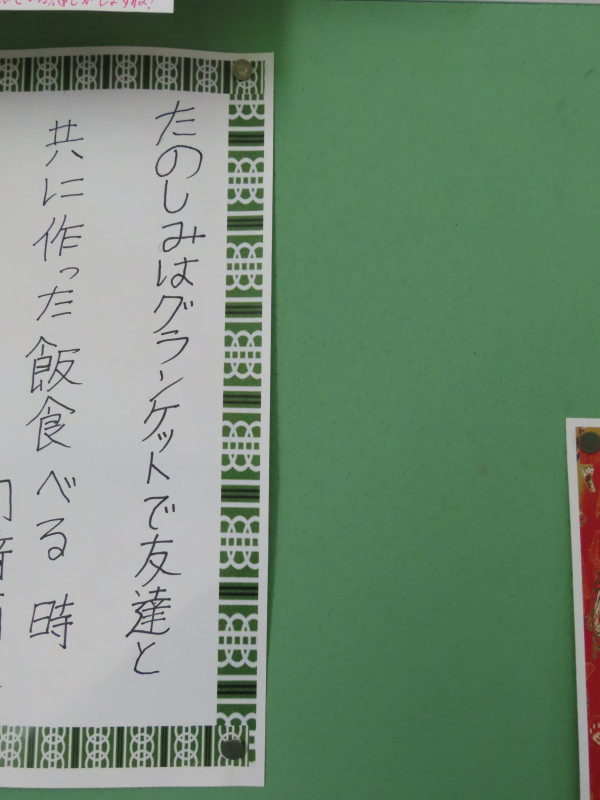 たのしみはグランケットで友達と
共に作った飯食べる時